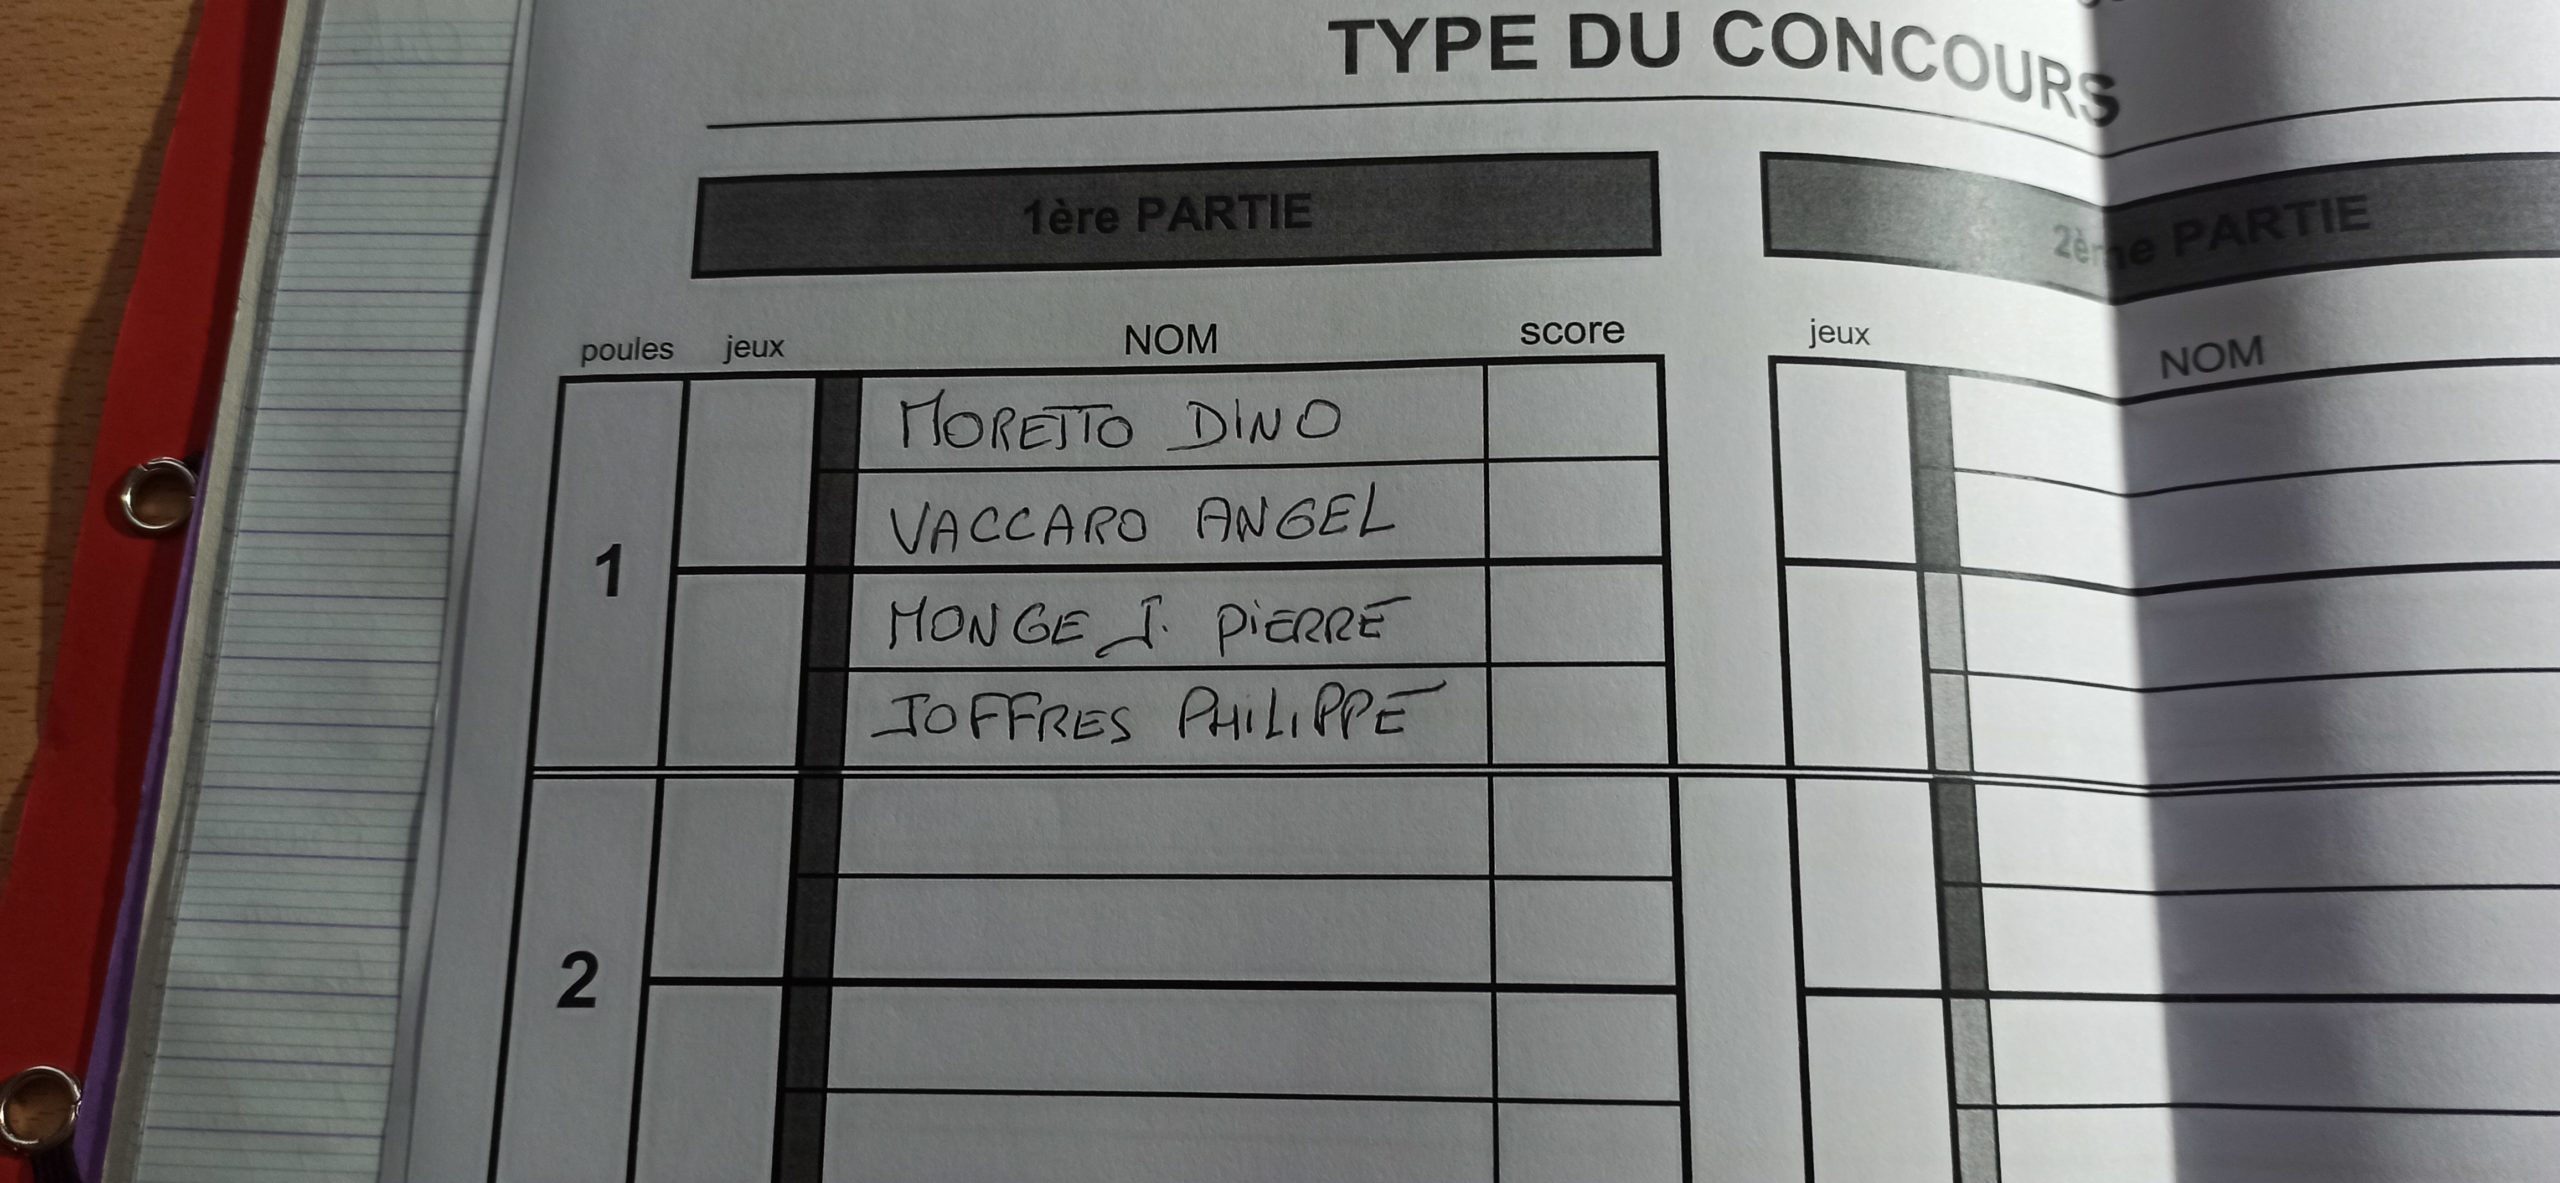 TYPE DU CONCOURS
1ère PARTIE
2ème PARTIE
poules jeux NOM score
jeux NOM
1
MORETTO DINO
VACCARO ANGEL
MONGE J. PiERRE
JOFFRES PHiLiPPE
2